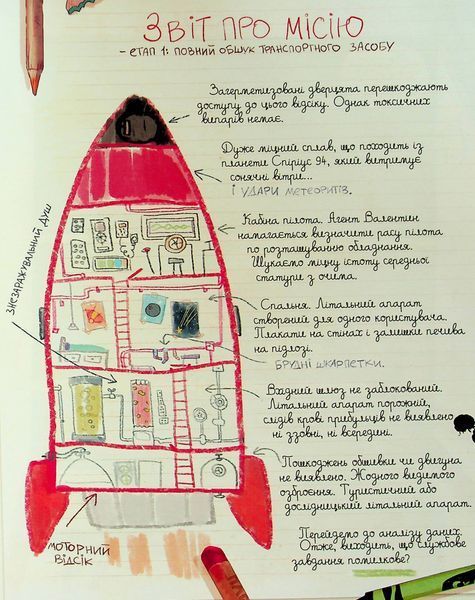 Звіт про місію
– етап 1: повний обшук транспортного засобу
Загерметизовані дверцята перешкоджають
доступу до цього відсіку. Однак токсичних
випарів немає.
Дуже міцний сплав, що походить із
планети Спіріус 94, який витримує
сонячні вітри...
і удари метеоритів.
Кабіна пілота. Агент Валентин
намагається визначити расу пілота
по розташуванню обладнання.
Шукаємо міцну істоту середньої
статури з очима.
знезаражувальний душ
Спальня. Літальний апарат
створений для одного користувача.
Плакати на стінах і залишки печива
на підлозі.
брудні шкарпетки.
Вхідний шлюз не заблокований.
Літальний апарат порожній,
слідів крові прибульців не виявлено
ні ззовні, ні всередині.
Пошкоджень обшивки чи двигуна
не виявлено. Жодного видимого
озброєння. Туристичний або
дослідницький літальний апарат.
моторний
відсік
Перейдемо до аналізу даних.
Отже, виходить, що службове
завдання помилкове?